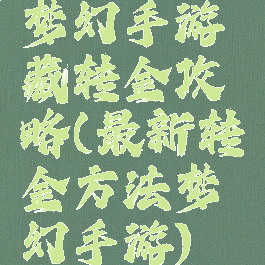 梦幻手游
藏转金攻
略(最新转
金方法梦
幻手游)